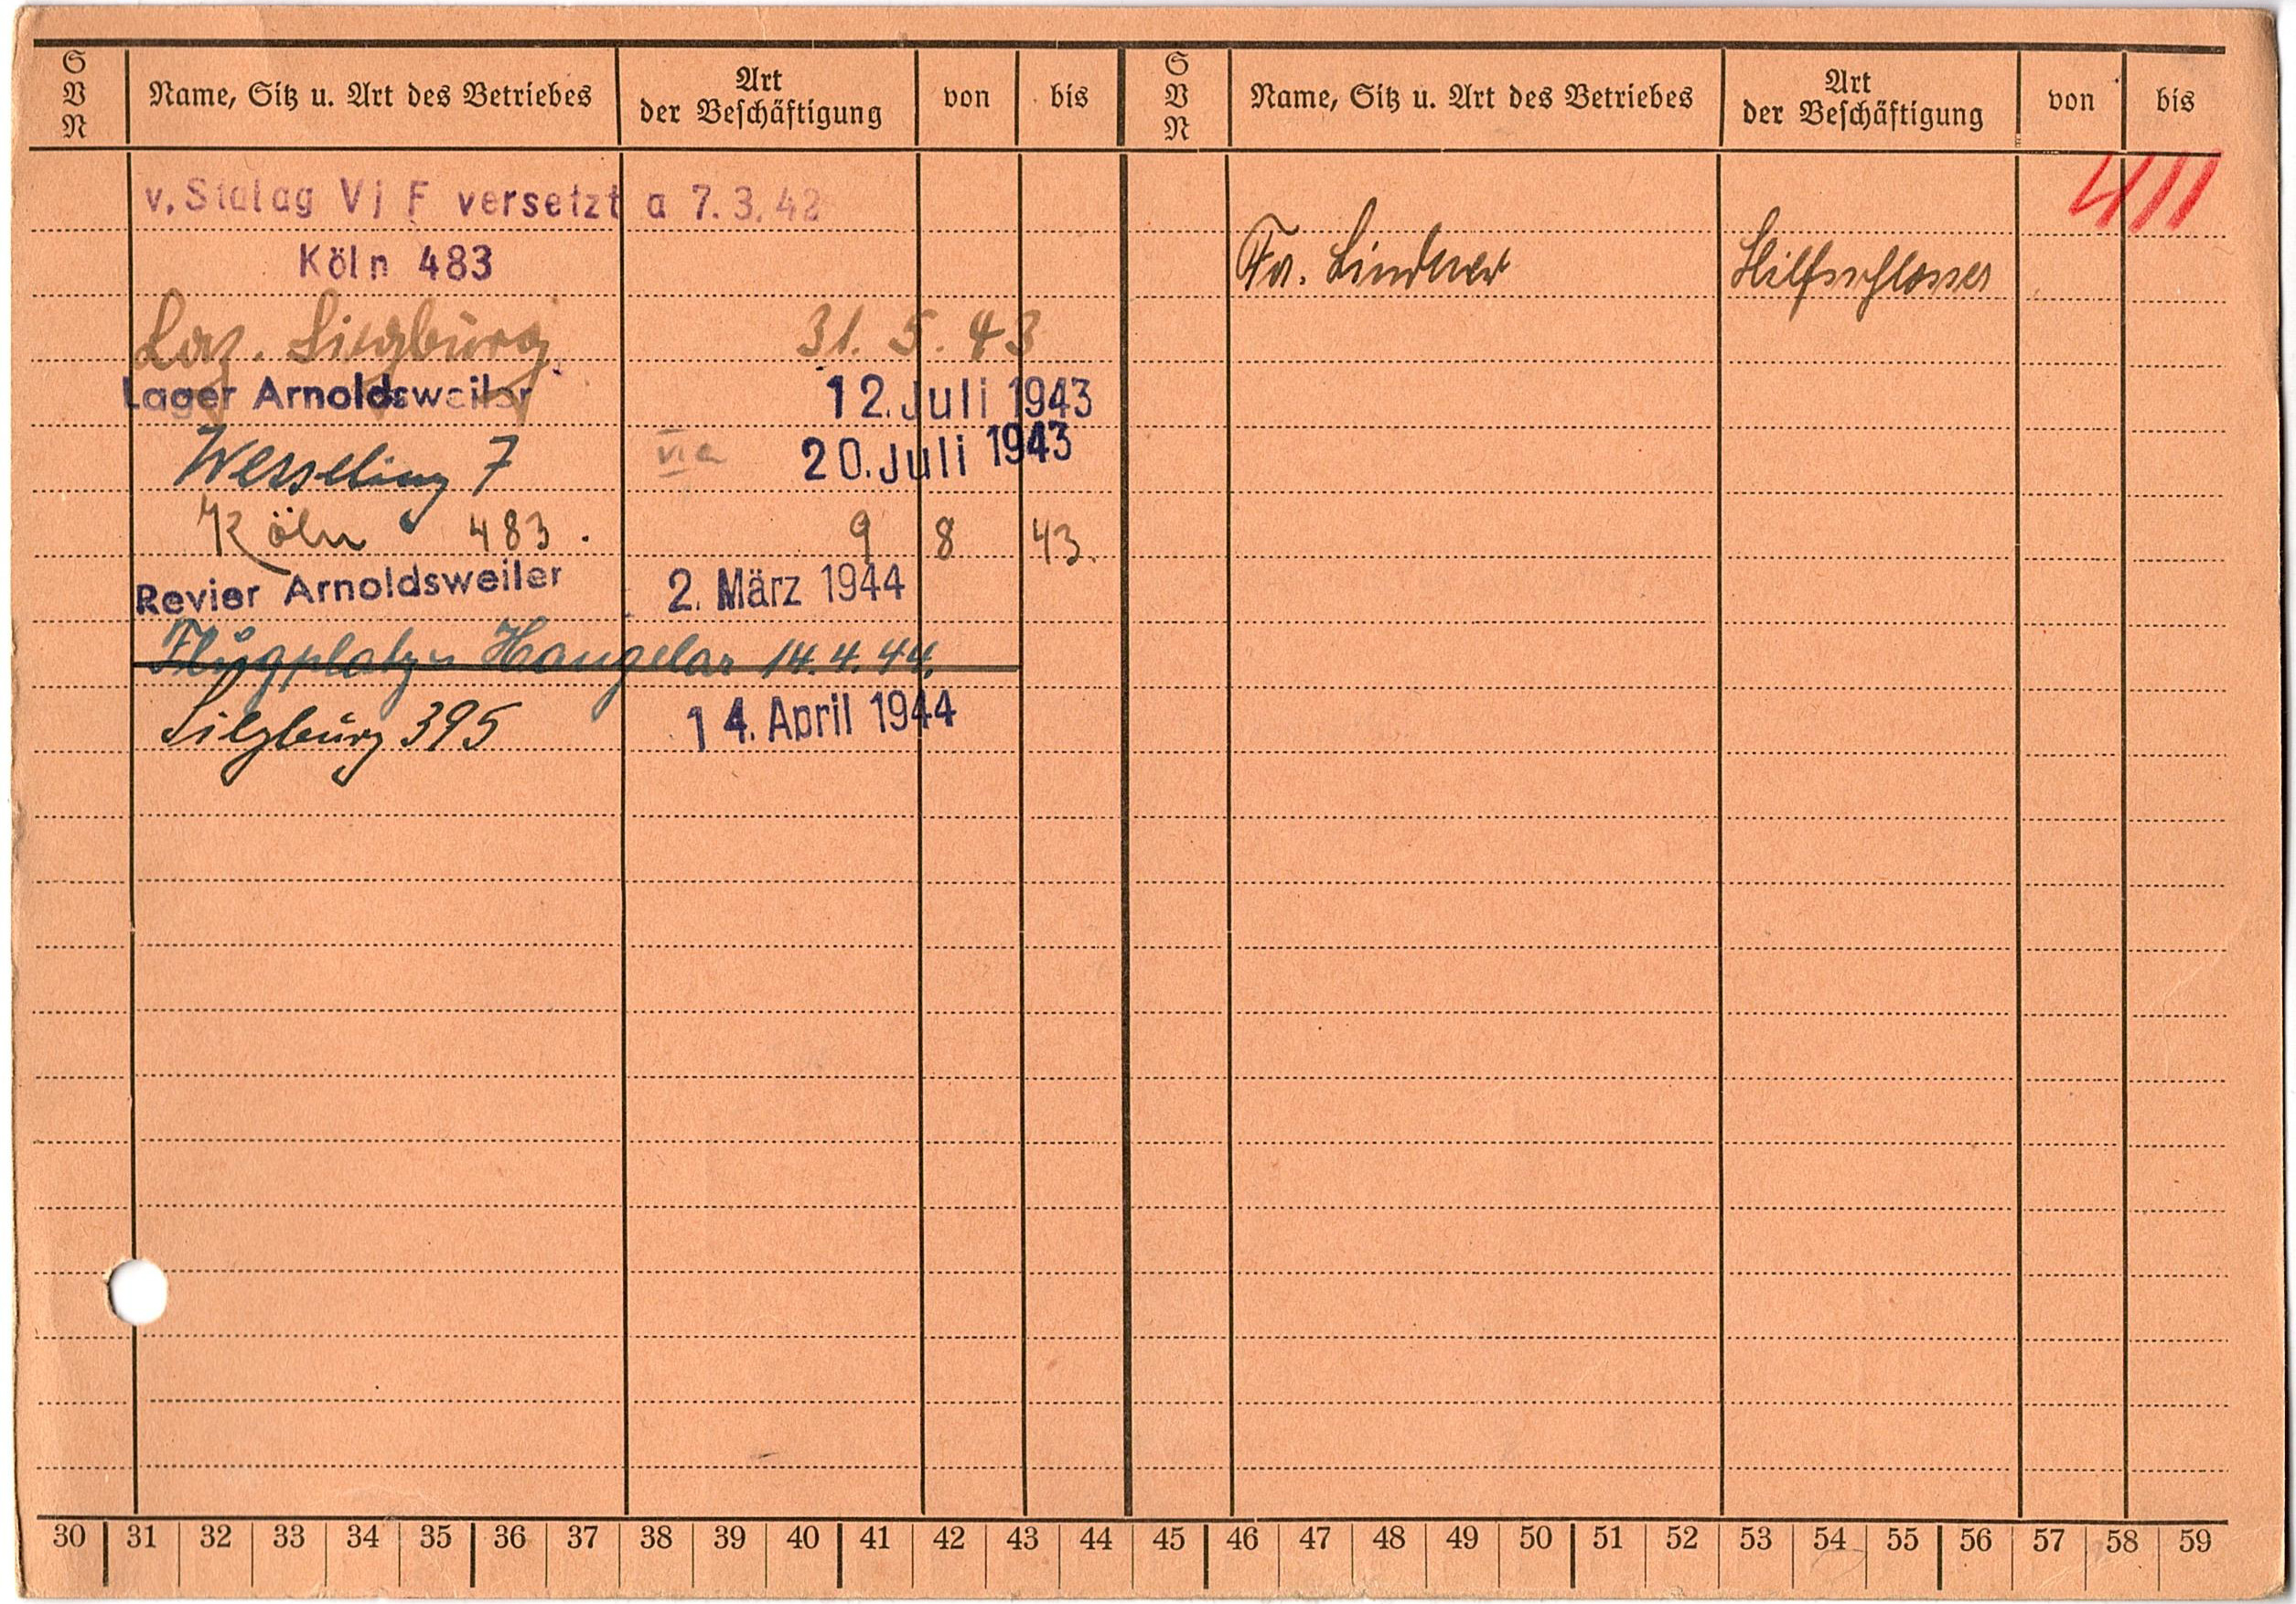 S V N Name, Sitz u. Art des Betriebes Art der Beschäftigung von bis S V N Name, Sitz u. Art des Betriebes Art der Beschäftigung von bis
v. Stalag VI F versetzt a 7.3.42
Köln 483
Laz. Siegburg. 31. 5. 43
Lager Arnoldsweiler 12. Juli 1943
Wesseling 7 VI a 20. Juli 1943
Köln 483. 9 8 43.
Revier Arnoldsweiler 2. März 1944
Flugplatz Hangelar 14.4.44.
Siegburg 395 14. April 1944
411
Fa. Lindner Hilfsschlosser
30 31 32 33 34 35 36 37 38 39 40 41 42 43 44 45 46 47 48 49 50 51 52 53 54 55 56 57 58 59